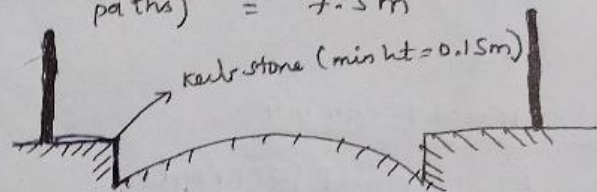 paths) = 7.5m
Kerb stone (min ht = 0.15m)